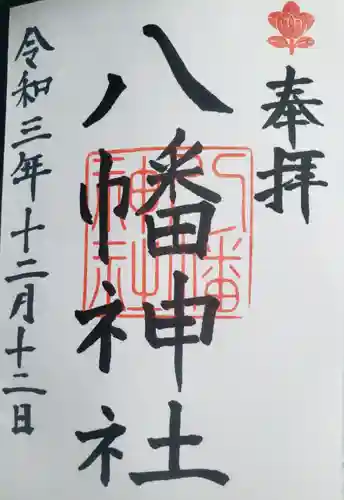 奉拝
八幡神社
令和三年十二月十二日
八幡神社